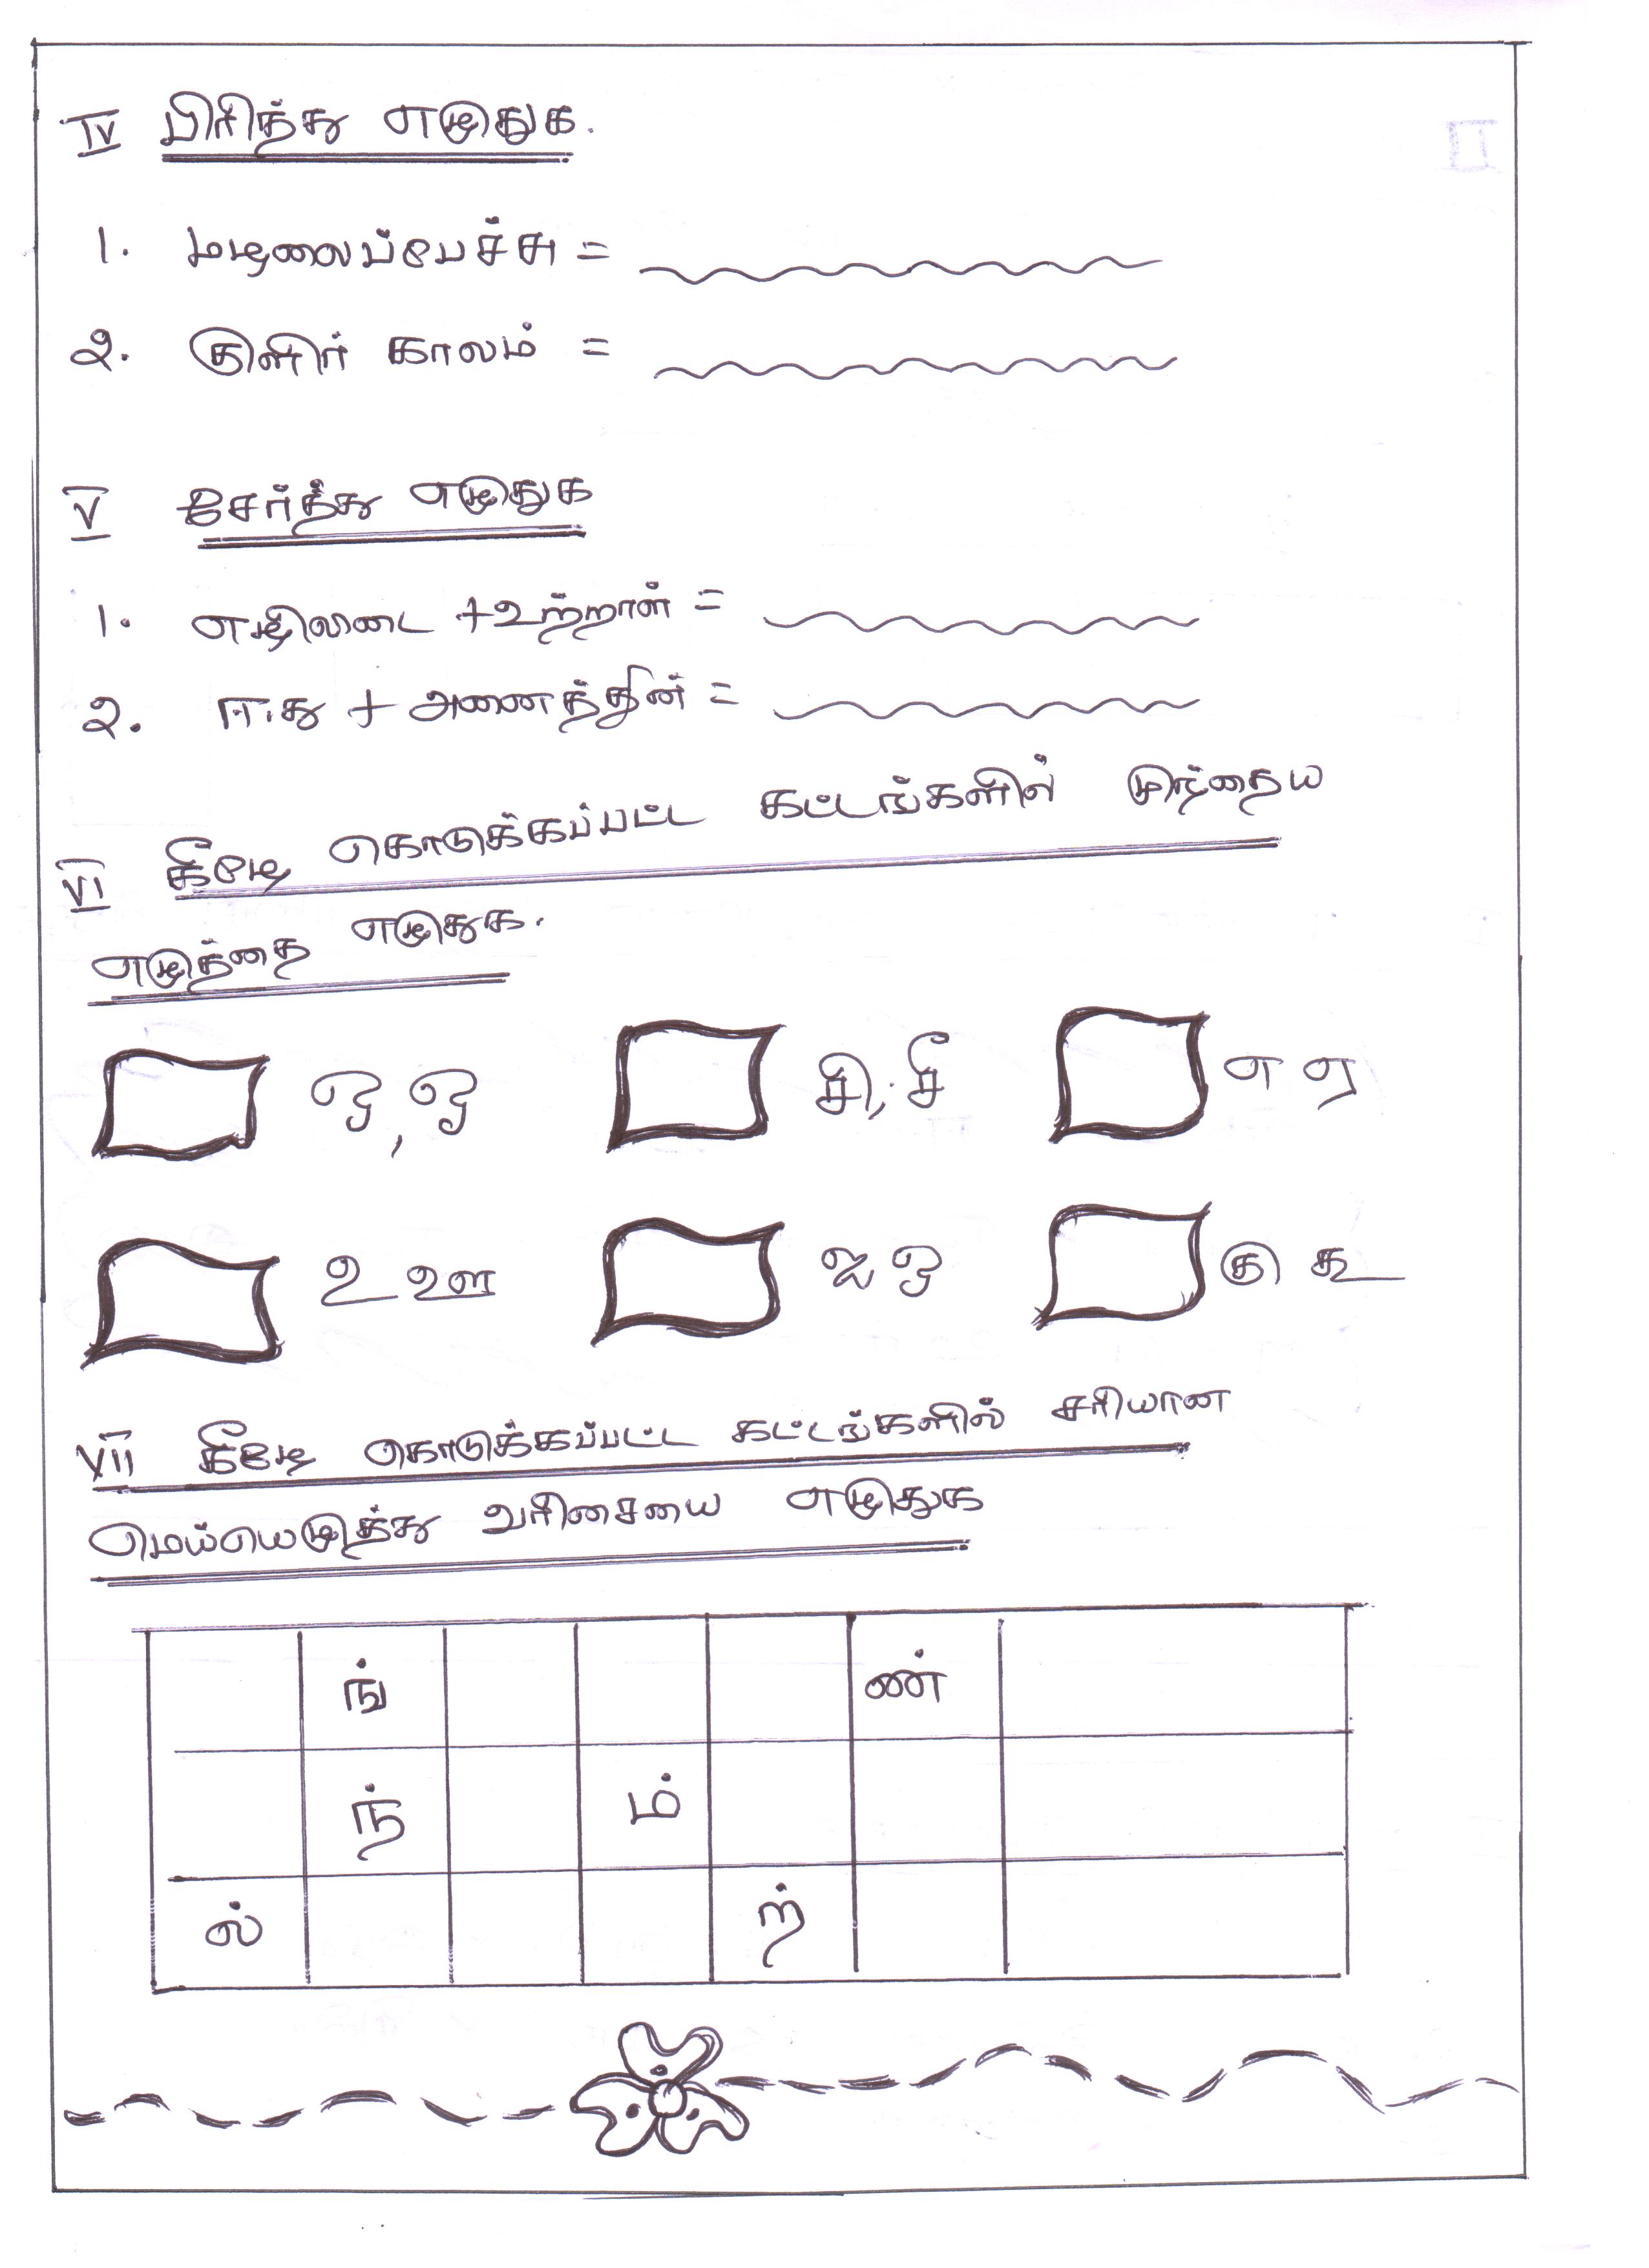 IV பிரித்து எழுதுக.
1. மழலைப்பேச்சு =
2. குளிர் காலம் =
V சேர்த்து எழுதுக
1. எழிலடை + உற்றான் =
2. ஈ.து + அனைத்தின் =
VI கீழே கொடுக்கப்பட்ட கட்டங்களில் முந்தைய
எழுத்தை எழுதுக.
ஒ, ஓ சி, சீ எ ஏ
உ ஊ ஐ ஒ கு கூ
VII கீழே கொடுக்கப்பட்ட கட்டங்களில் சரியான
மெய்யெழுத்து வரிசையை எழுதுக
ங் ண்
ந் ம்
ல் ற்